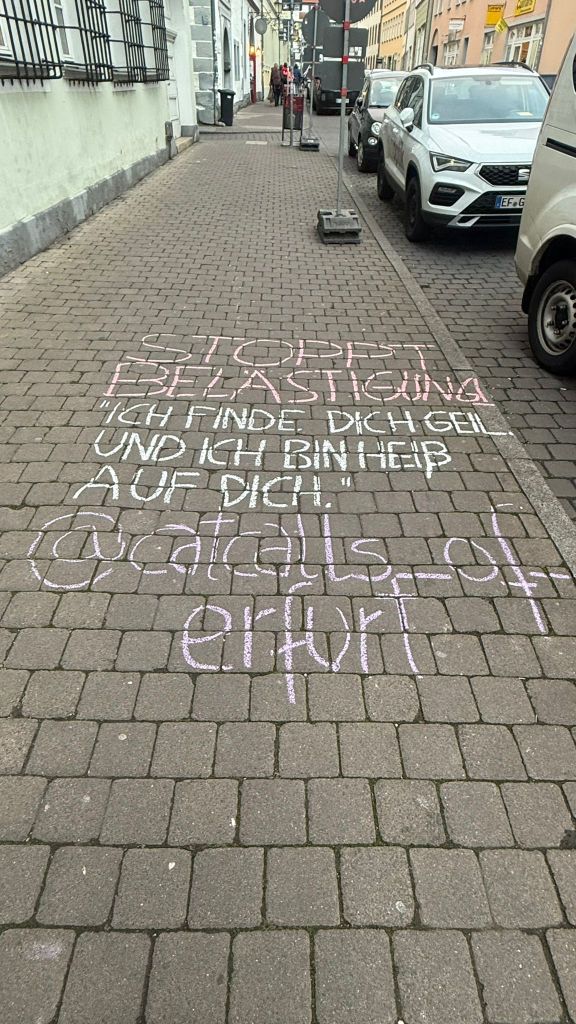 STOPPT
BELÄSTIGUNG
"ICH FINDE DICH GEIL
UND ICH BIN HEIß
AUF DICH."
@catcalls_of_
erfurt